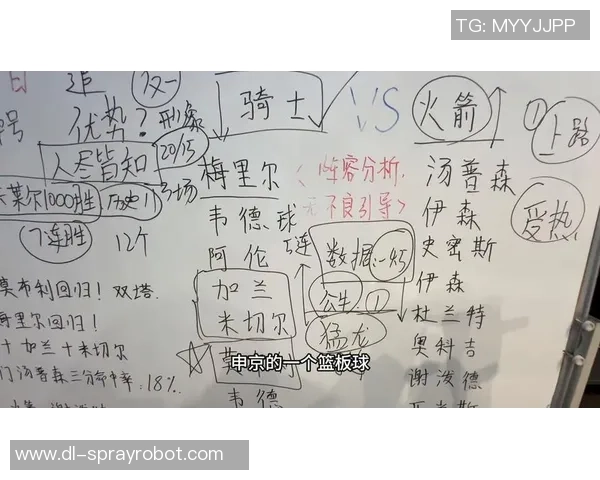 TG: MYYJJPP
追 双一
优势? 形象
人尽皆知 20/15
莱尔1000胜 历史11
7连胜 12个
莫布利回归! 双塔.
梅里尔回归!
十加兰十米切尔
门汤普森三分命中率:18%.
骑士 VS 火箭
梅里尔
韦德
阿伦
加兰
米切尔
韦德
<阵容分析.
不良引导>
数据:-45
猛龙
汤普森
伊森
史密斯
伊森
杜兰特
奥科吉
谢泼德
① 上路
受热
申京的一个篮板球
www.dl-sprayrobot.com